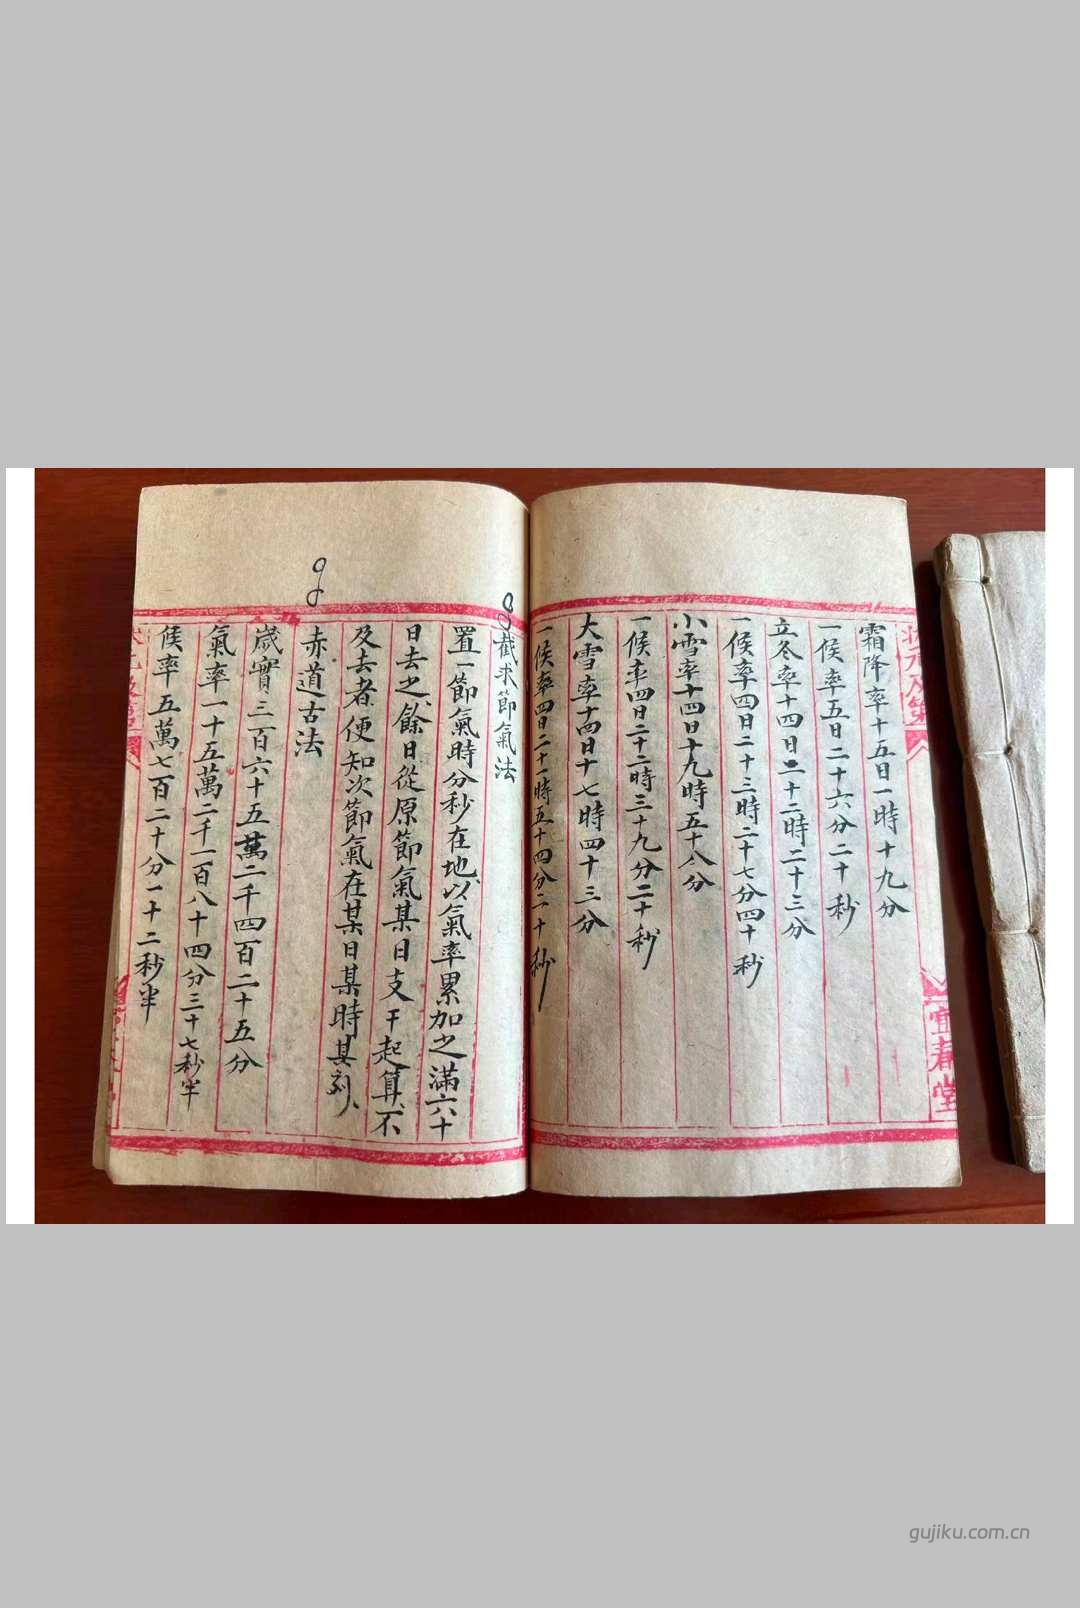 霜降率十五日一時十九分
一候率五日二十六分二十秒
立冬率十四日二十二時二十三分
一候率四日二十三時二十七分四十秒
小雪率十四日十九時五十八分
一候率四日二十二時三十九分二十秒
大雪率十四日十七時四十三分
一候率四日二十一時五十四分二十秒
截求節氣法
置一節氣時分秒在地以氣率累加之滿六十
日去之餘日從原節氣某日支干起算不
及去者便知次節氣在某日某時某刻
赤道古法
歲實三百六十五萬二千四百二十五分
氣率一十五萬二千一百八十四分三十七秒半
候率五萬七百二十分一十二秒半
狀元及第
宜春堂
gujiku.com.cn